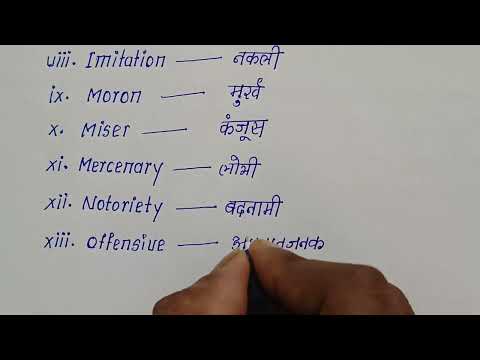 viii. Imitation — नकली
ix. Moron — मुर्ख
x. Miser — कंजूस
xi. Mercenary — लोभी
xii. Notoriety — बदनामी
xiii. Offensive —